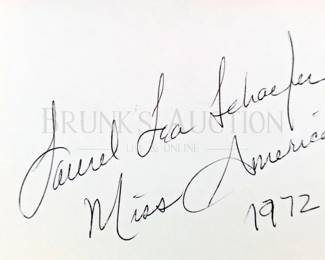 Laurel Lea Schaefer
BRUNK'S AUCTION
Miss America
1972